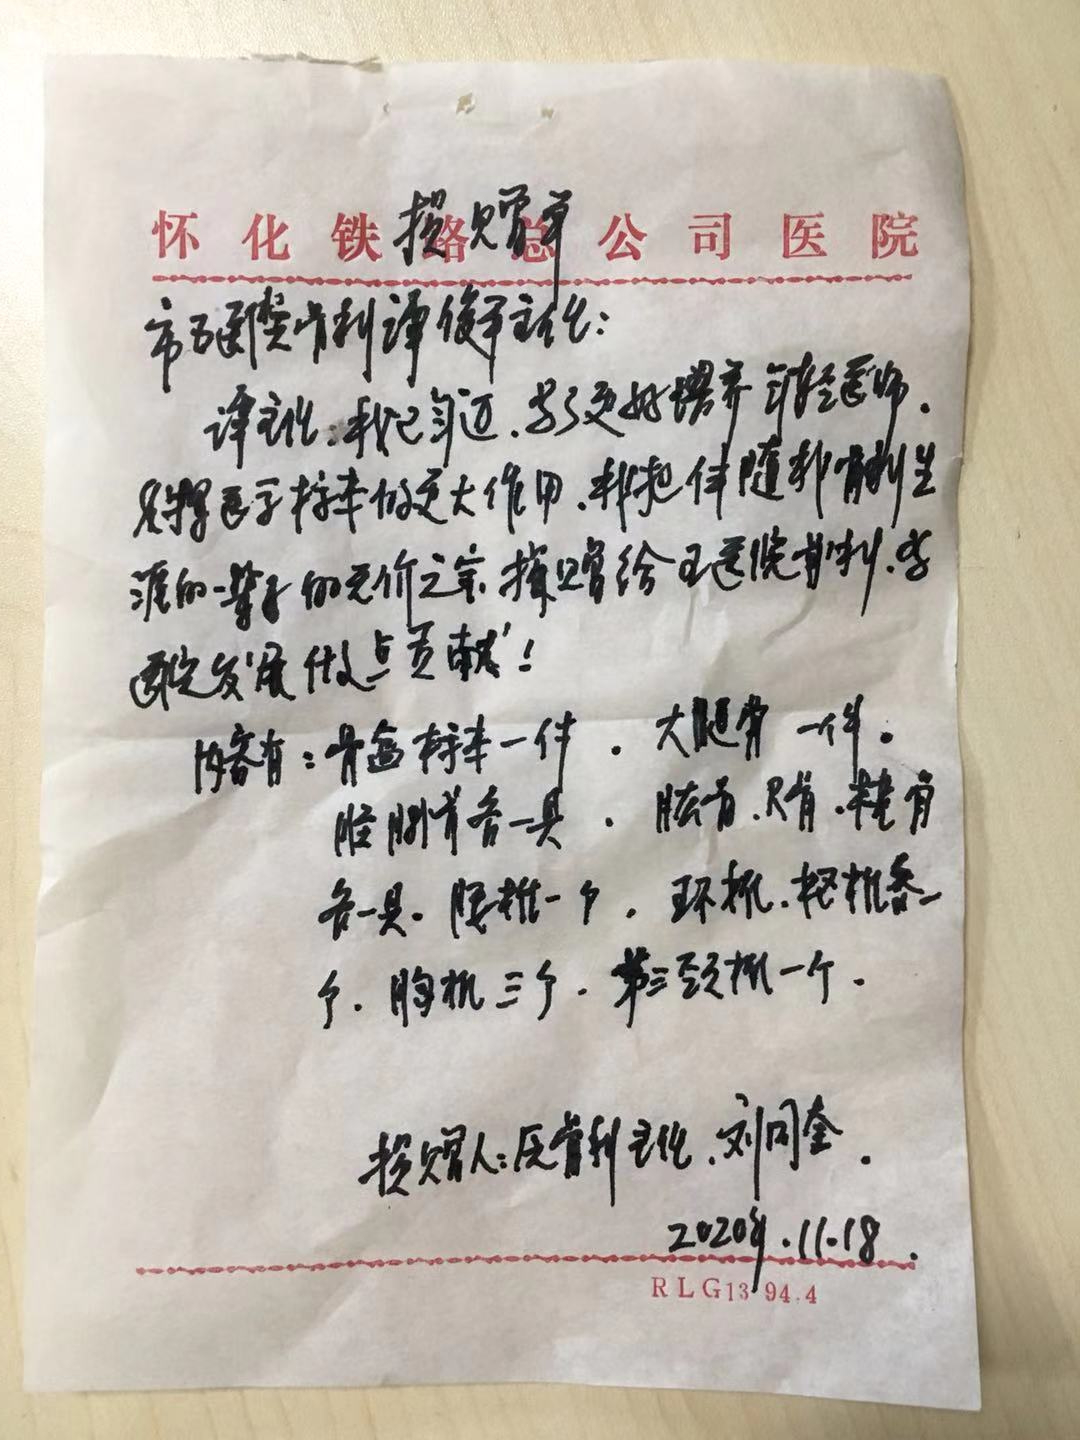 怀化铁路总公司医院
捐赠单
市五医院骨科谭俊平主任:
谭主任:我已年迈.为了更好培养年轻医师.
发挥医学标本的更大作用.我把伴随我骨科生
涯的一辈子的无价之宝.捐赠给五医院骨科.为
医院发展做点贡献!
内容有:骨盆标本一件.大腿骨一件.
胫腓骨各一具.肱骨.尺骨.桡骨
各一具.腰椎一个.环椎.枢椎各一
个.胸椎三个.第三颈椎一个.
捐赠人:原骨科主任.刘同奎.
2020年.11.18.
RLG13 94.4